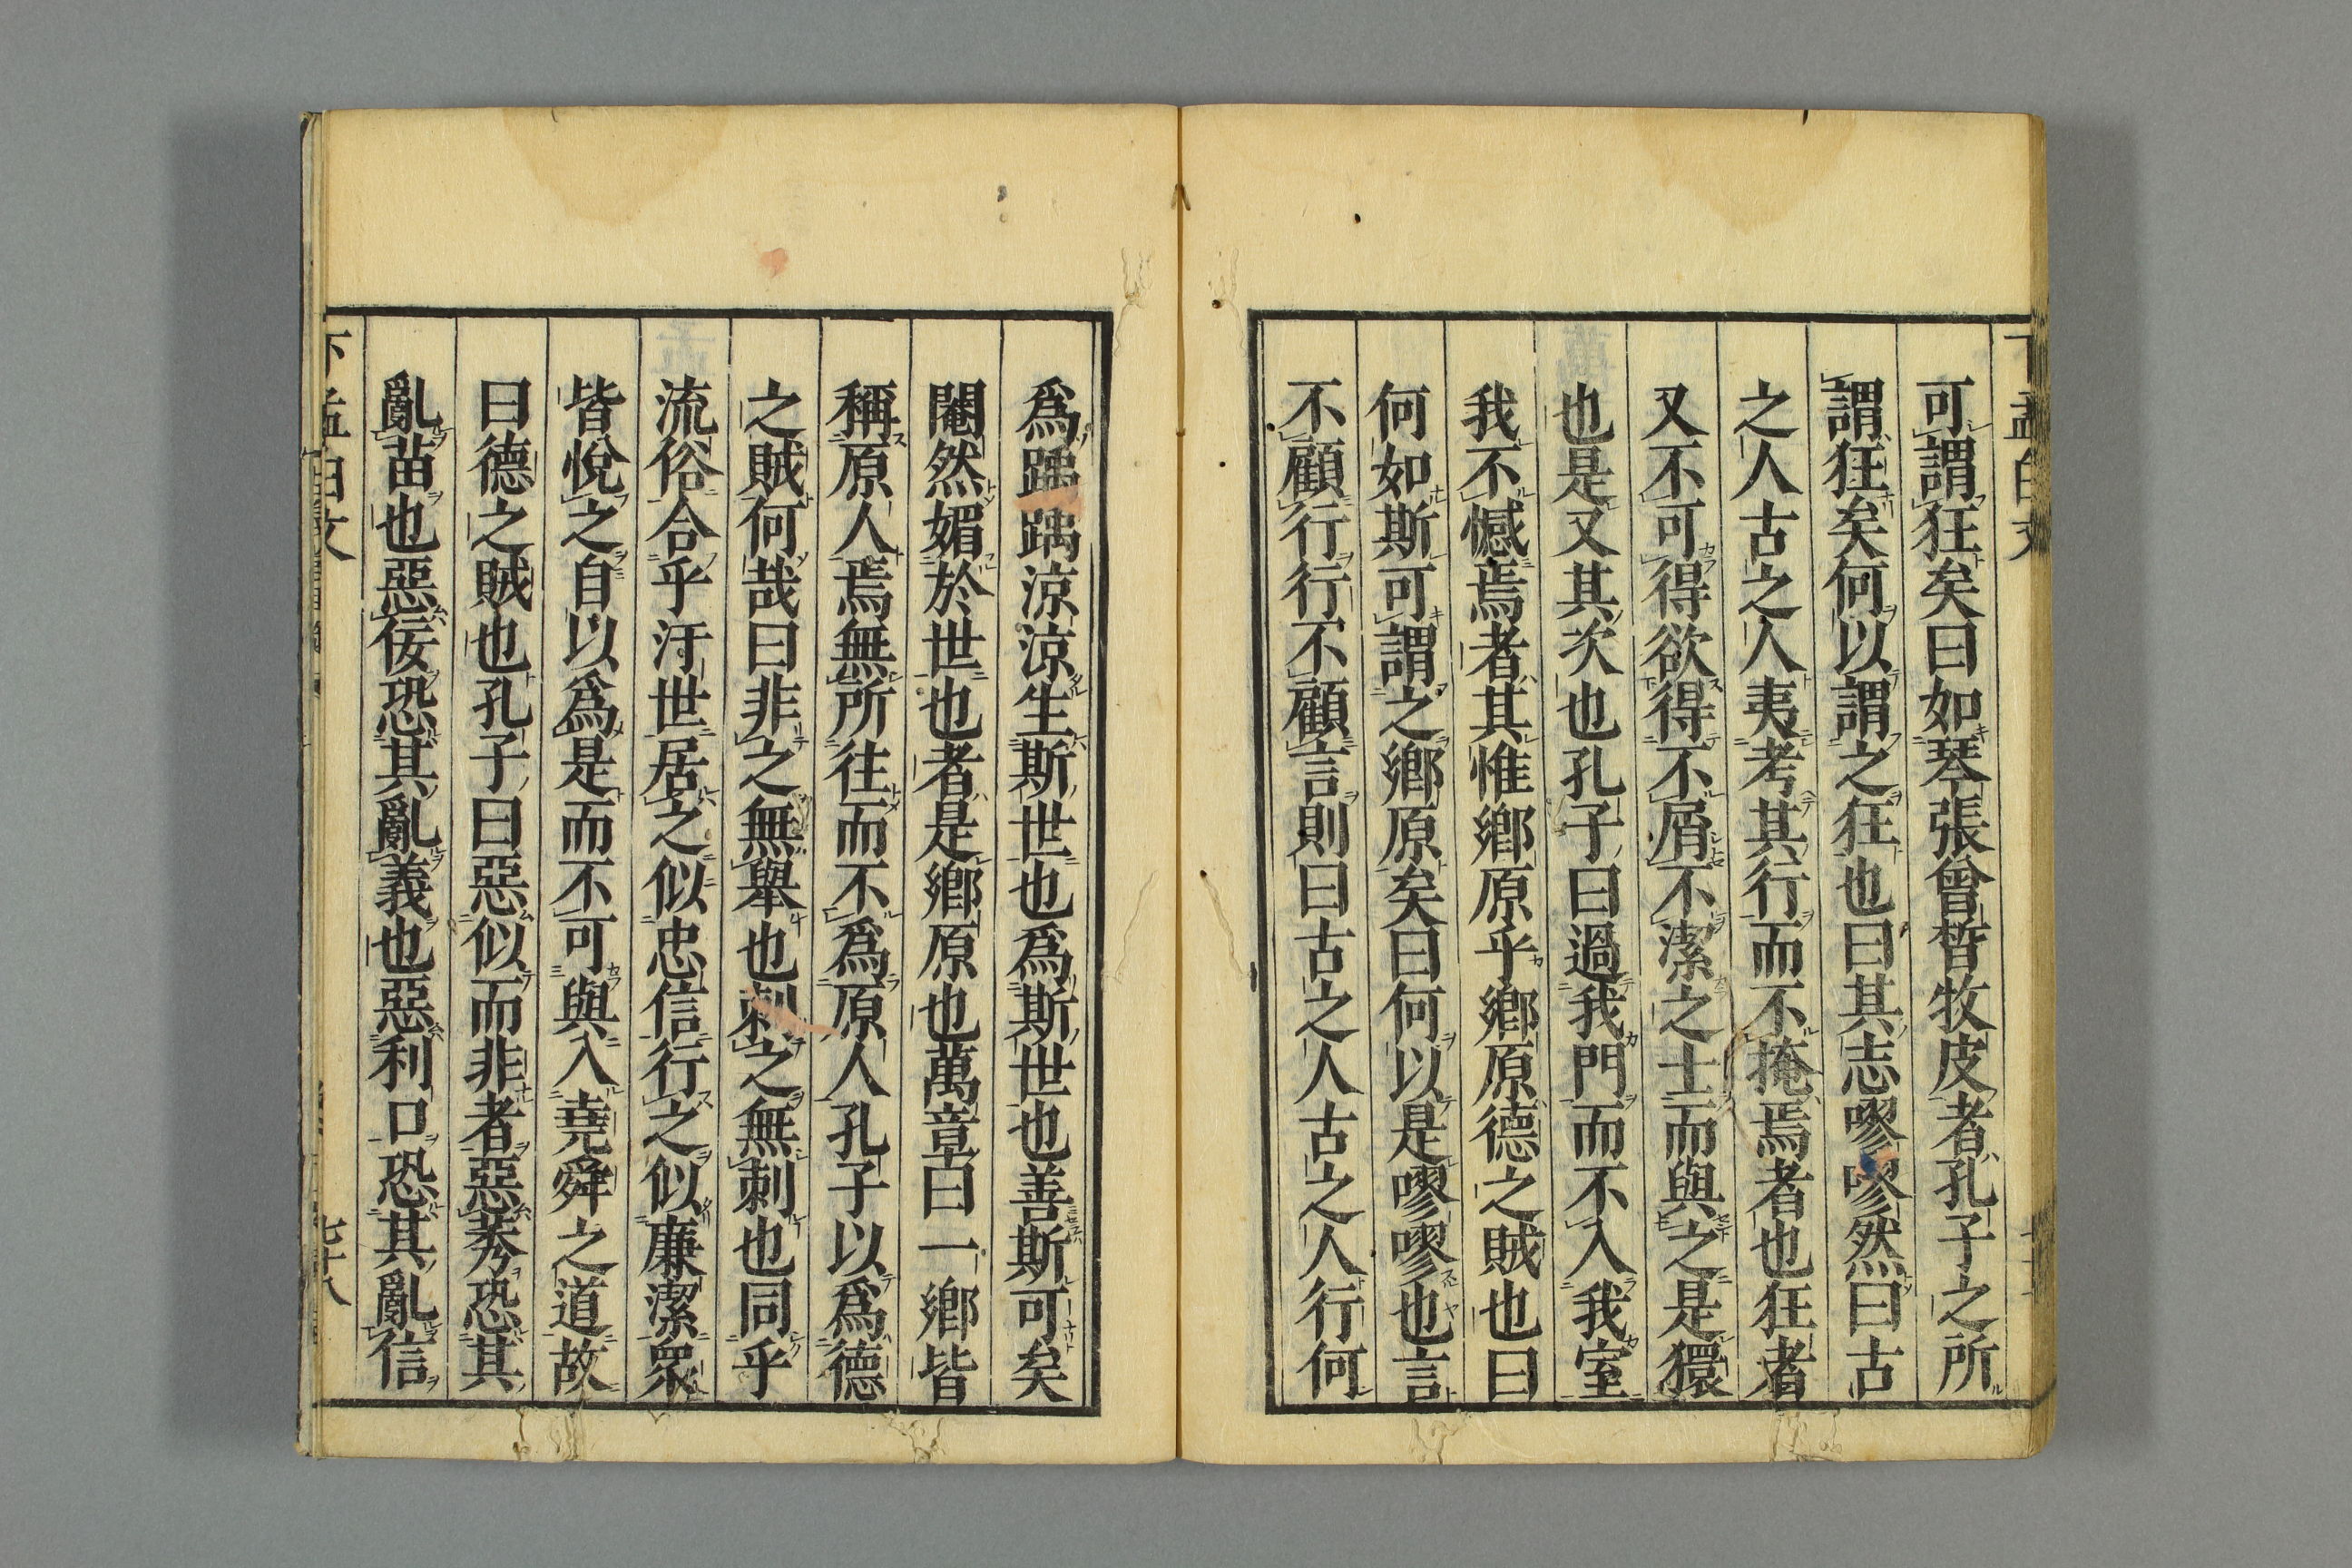 可謂狂矣曰如琴張曾晳牧皮者孔子之所
謂狂矣何以謂之狂也曰其志嘐嘐然曰古
之人古之人夷考其行而不掩焉者也狂者
又不可得欲得不屑不潔之士而與之是獧
也是又其次也孔子曰過我門而不入我室
我不憾焉者其惟鄉原乎鄉原德之賊也曰
何如斯可謂之鄉原矣曰何以是嘐嘐也言
不顧行行不顧言則曰古之人古之人行何
爲踽踽涼涼生斯世也爲斯世也善斯可矣
閹然媚於世也者是鄉原也萬章曰一鄉皆
稱原人焉無所往而不爲原人孔子以爲德
之賊何哉曰非之無舉也刺之無刺也同乎
流俗合乎汙世居之似忠信行之似廉潔眾
皆悅之自以爲是而不可與入堯舜之道故
曰德之賊也孔子曰惡似而非者惡莠恐其
亂苗也惡佞恐其亂義也惡利口恐其亂信
七十八